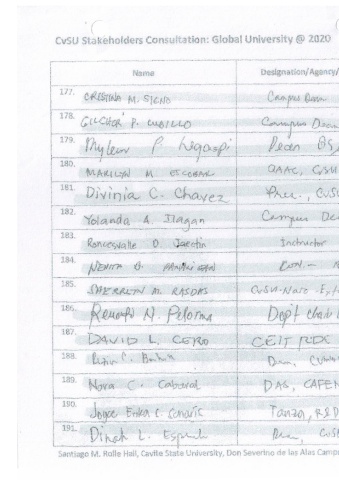 CvSU Stakeholders Consultation: Global University @ 2020
Name Designation/Agency/
177. CRISTINA M. SIGNO Campus Dean
178. GILCHOR P. CUBILLO Campus Dean
179. Mylene P. Legaspi Dean
180. MARILYN M ESCOBAR QAAC, CvSU
181. Divinia C. Chavez CvSU
182. Yolanda A. Ilagan Campus Dea
183. Roncesvalle D. Instructor
184. NENITA B.
185. SHERRILYN M. RASDAS CvSU-Naic Ext
186. Renato N. Pelorina Dep't chair
187. DAVID L. CERO CEIT RDE
188.
189. Nora C. Cabaral DAS, CAFEN
190. Joyce Erika C. Tanza, R&D
191. Dinah L.
Santiago M. Rolle Hall, Cavite State University, Don Severino de las Alas Camp